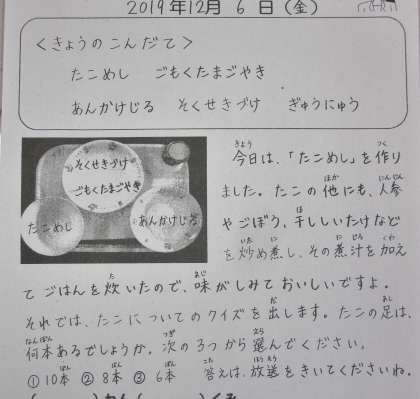 2019年12月 6 日（金）
＜きょうのこんだて＞
たこめし　ごもくたまごやき
あんかけじる　そくせきづけ　ぎゅうにゅう
そくせきづけ
ごもくたまごやき
たこめし
あんかけじる
今日は、「たこめし」を作り
ました。たこの他にも、人参
やごぼう、干ししいたけなど
を炒め煮し、その煮汁を加え
てごはんを炊いたので、味がしみておいしいですよ。
それでは、たこについてのクイズを出します。たこの足は、
何本あるでしょうか。次の3つから選んでください。
①10本　②8本　③6本　答えは、放送をきいてくださいね。